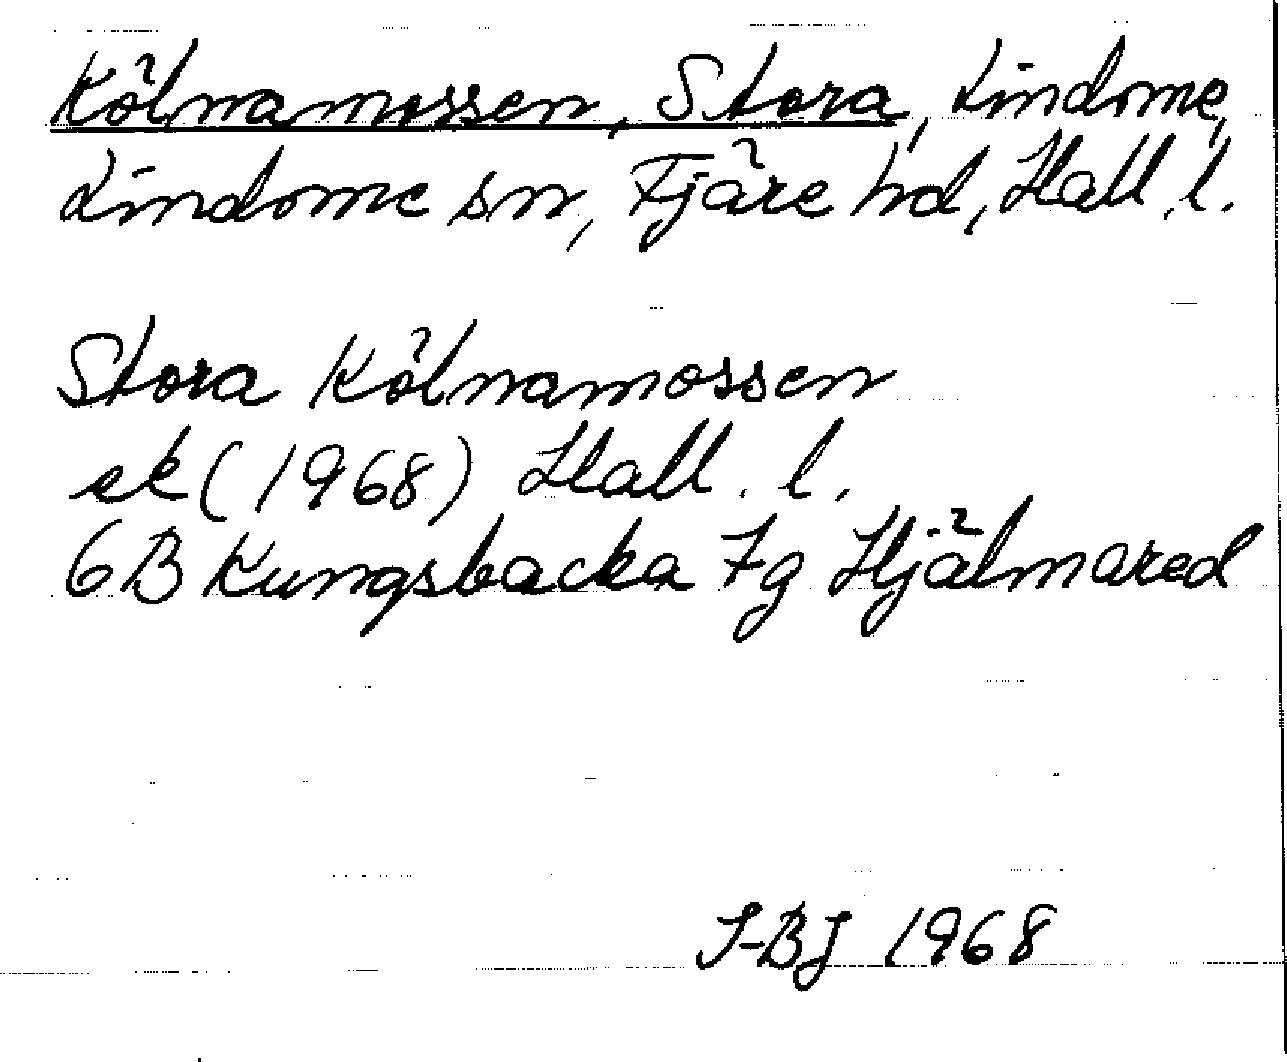 Kölnamossen, Stora, Lindome,
Lindome sn, Fjäre hd, Hall. l.
Stora Kölnamossen
ek (1968) Hall. l.
6B Kungsbacka 7g Hjälmared
I-BJ 1968